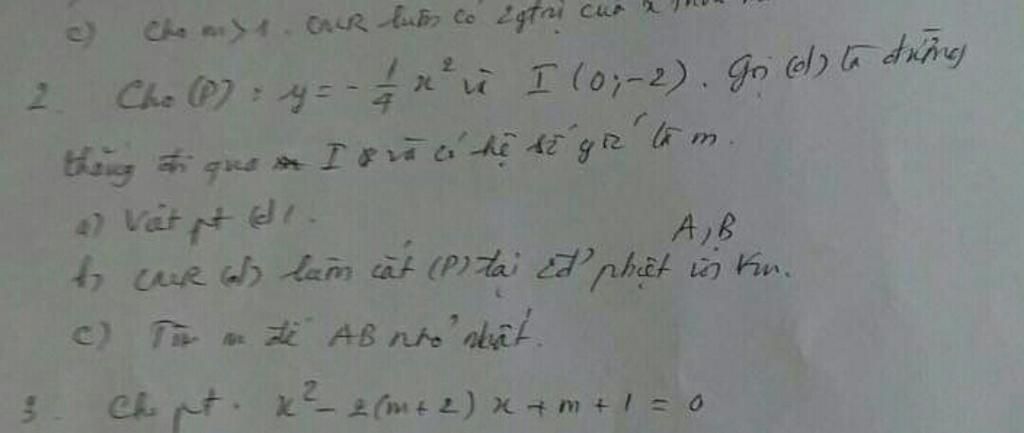 c) Cho m > 1. CMR luôn có 2 gtrị của x
2. Cho (P): y = -1/4 x² và I (0;-2). Gọi (d) là đường
thẳng đi qua I và có hệ số góc là m.
a) Viết pt (d).
A, B
b) CMR (d) luôn cắt (P) tại 2đ' phiệt với ∀m.
c) Tìm m để AB nhỏ nhất.
3. Cho pt. x² - 2(m+2)x + m + 1 = 0